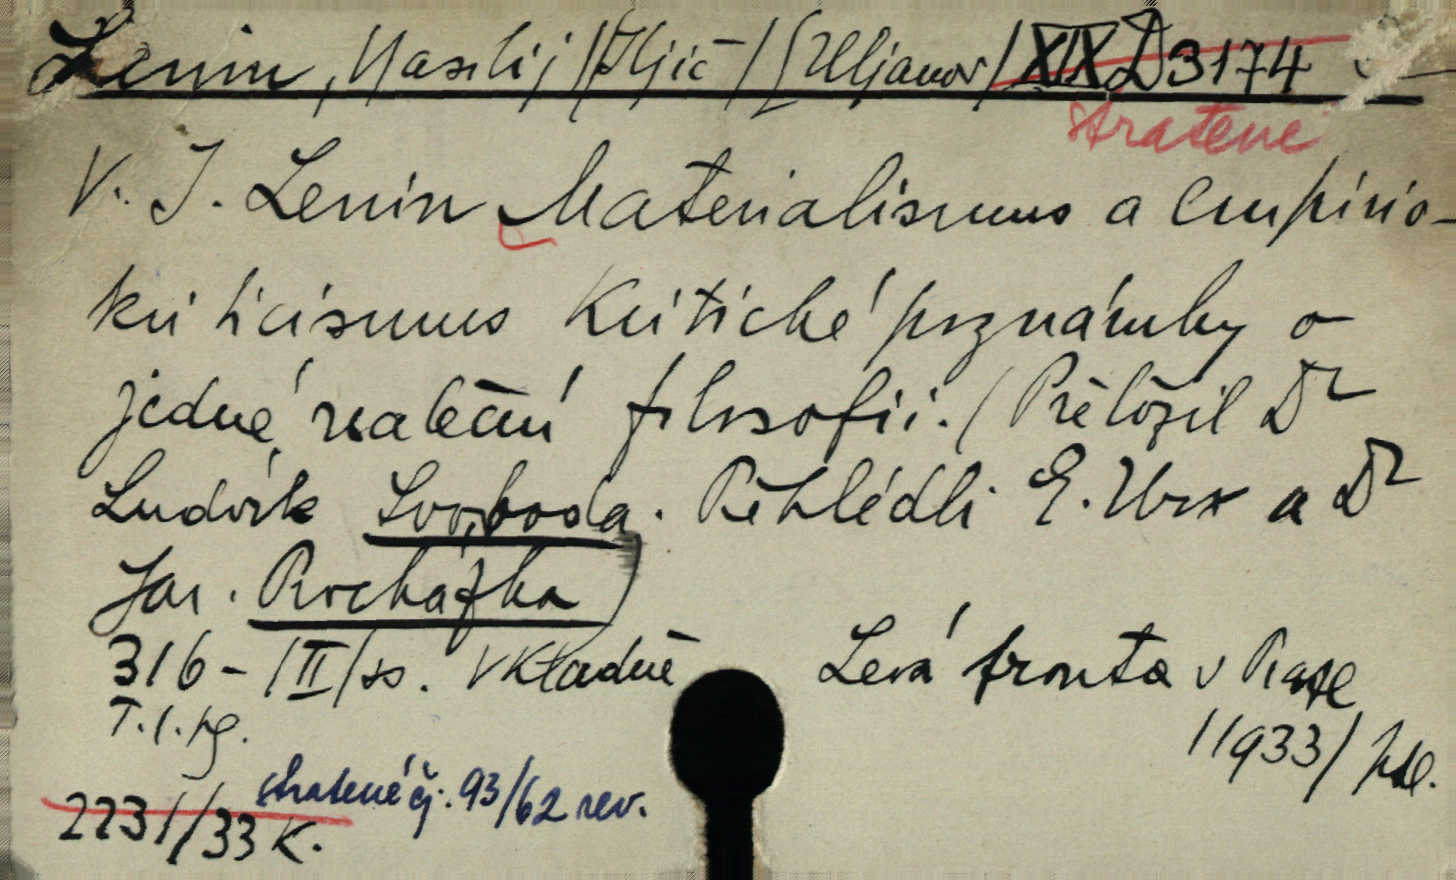 Lenin, Vasilij /Iljič/ [Uljanov/ XIX D 3174
stratené
V. I. Lenin Materialismus a empirio-
kriticismus Kritické poznámky o
jedné reakční filosofii. (Přeložil Dr
Ludvík Svoboda. Přehlédli E. Urx a Dr
Jar. Procházka)
316 - /II/ ss. V Kladně Levá fronta v Praze
T. I. Kg. /1933/
stratené čj. 93/62 rev.
2231/33 K.